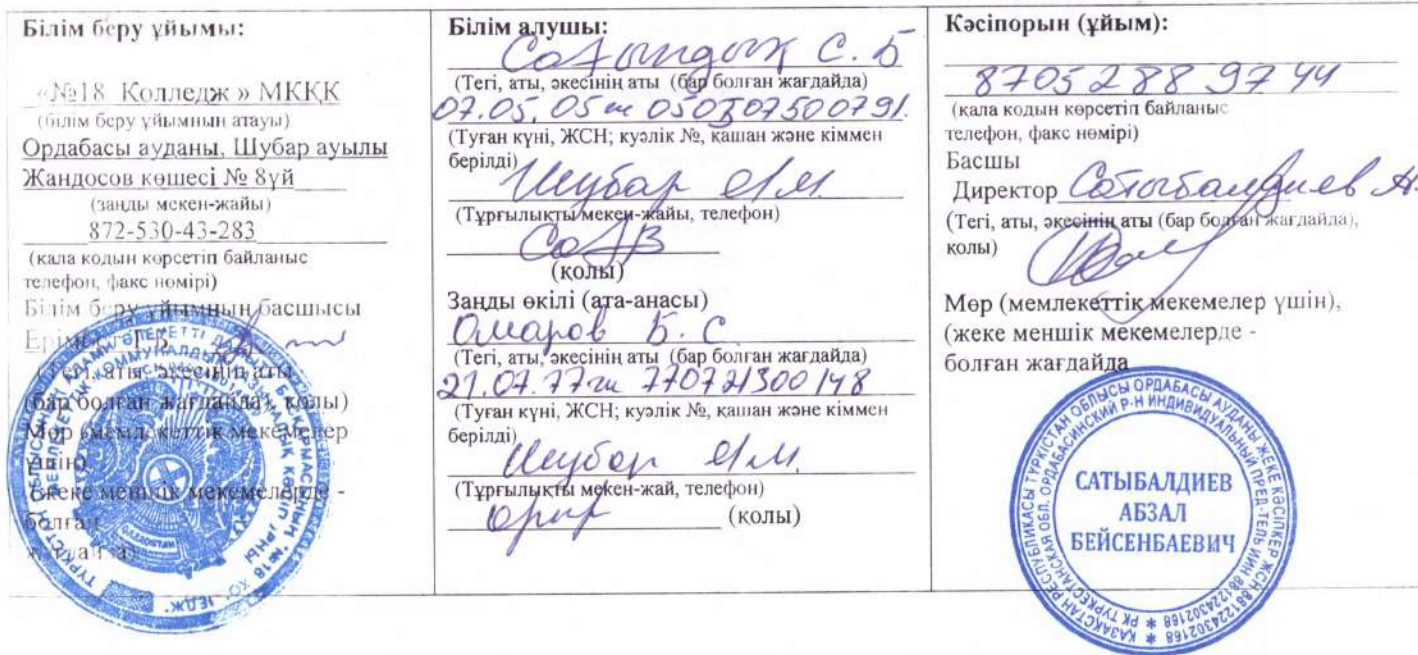 Білім беру ұйымы:
«№18 Колледж » МКҚК
(білім беру ұйымнын атауы)
Ордабасы ауданы, Шубар ауылы
Жандосов көшесі № 8үй
(заңды мекен-жайы)
872-530-43-283
(кала кодын көрсетіп байланыс
телефон, факс нөмірі)
Білім беру ұйымның басшысы
(Тегі, аты, әкесінің аты
(бар болған жағдайда), қолы)
Мөр (мемлекеттік мекемелер
үшін),
(жеке меншік мекемелерде -
болған
жағдайда)
Білім алушы:
Сағындық С. Б
(Тегі, аты, әкесінің аты (бар болған жағдайда)
07.05.05 050507500791.
(Туған күні, ЖСН; куәлік №, қашан және кіммен
берілді)
Шубар
(Тұрғылықты мекен-жайы, телефон)
(қолы)
Заңды өкілі (ата-анасы)
Омаров Б. С
(Тегі, аты, әкесінің аты (бар болған жағдайда)
21.07.77 770721300148
(Туған күні, ЖСН; куәлік №, қашан және кіммен
берілді)
Шубар
(Тұрғылықты мекен-жай, телефон)
(қолы)
Кәсіпорын (ұйым):
8705 288 97 44
(кала кодын көрсетіп байланыс
телефон, факс нөмірі)
Басшы
Директор Сатыбалдиев А.
(Тегі, аты, әкесінің аты (бар болған жағдайда),
қолы)
Мөр (мемлекеттік мекемелер үшін),
(жеке меншік мекемелерде -
болған жағдайда
ҚАЗАҚСТАН РЕСПУБЛИКАСЫ ТҮРКІСТАН ОБЛЫСЫ ОРДАБАСЫ АУДАНЫ ЖЕКЕ КӘСІПКЕР ЖСН 881224302168
РК ТУРКЕСТАНСКАЯ ОБЛ. ОРДАБАСИНСКИЙ Р-Н ИНДИВИДУАЛЬНЫЙ ПРЕД-ТЕЛЬ ИИН 881224302168
САТЫБАЛДИЕВ
АБЗАЛ
БЕЙСЕНБАЕВИЧ